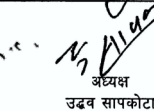 अध्यक्ष
उद्धव सापकोटा